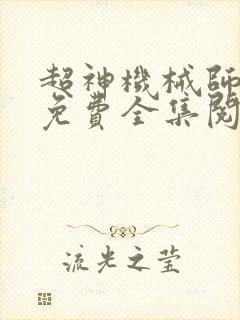 超神機械師
免費全集閱
流光之莹